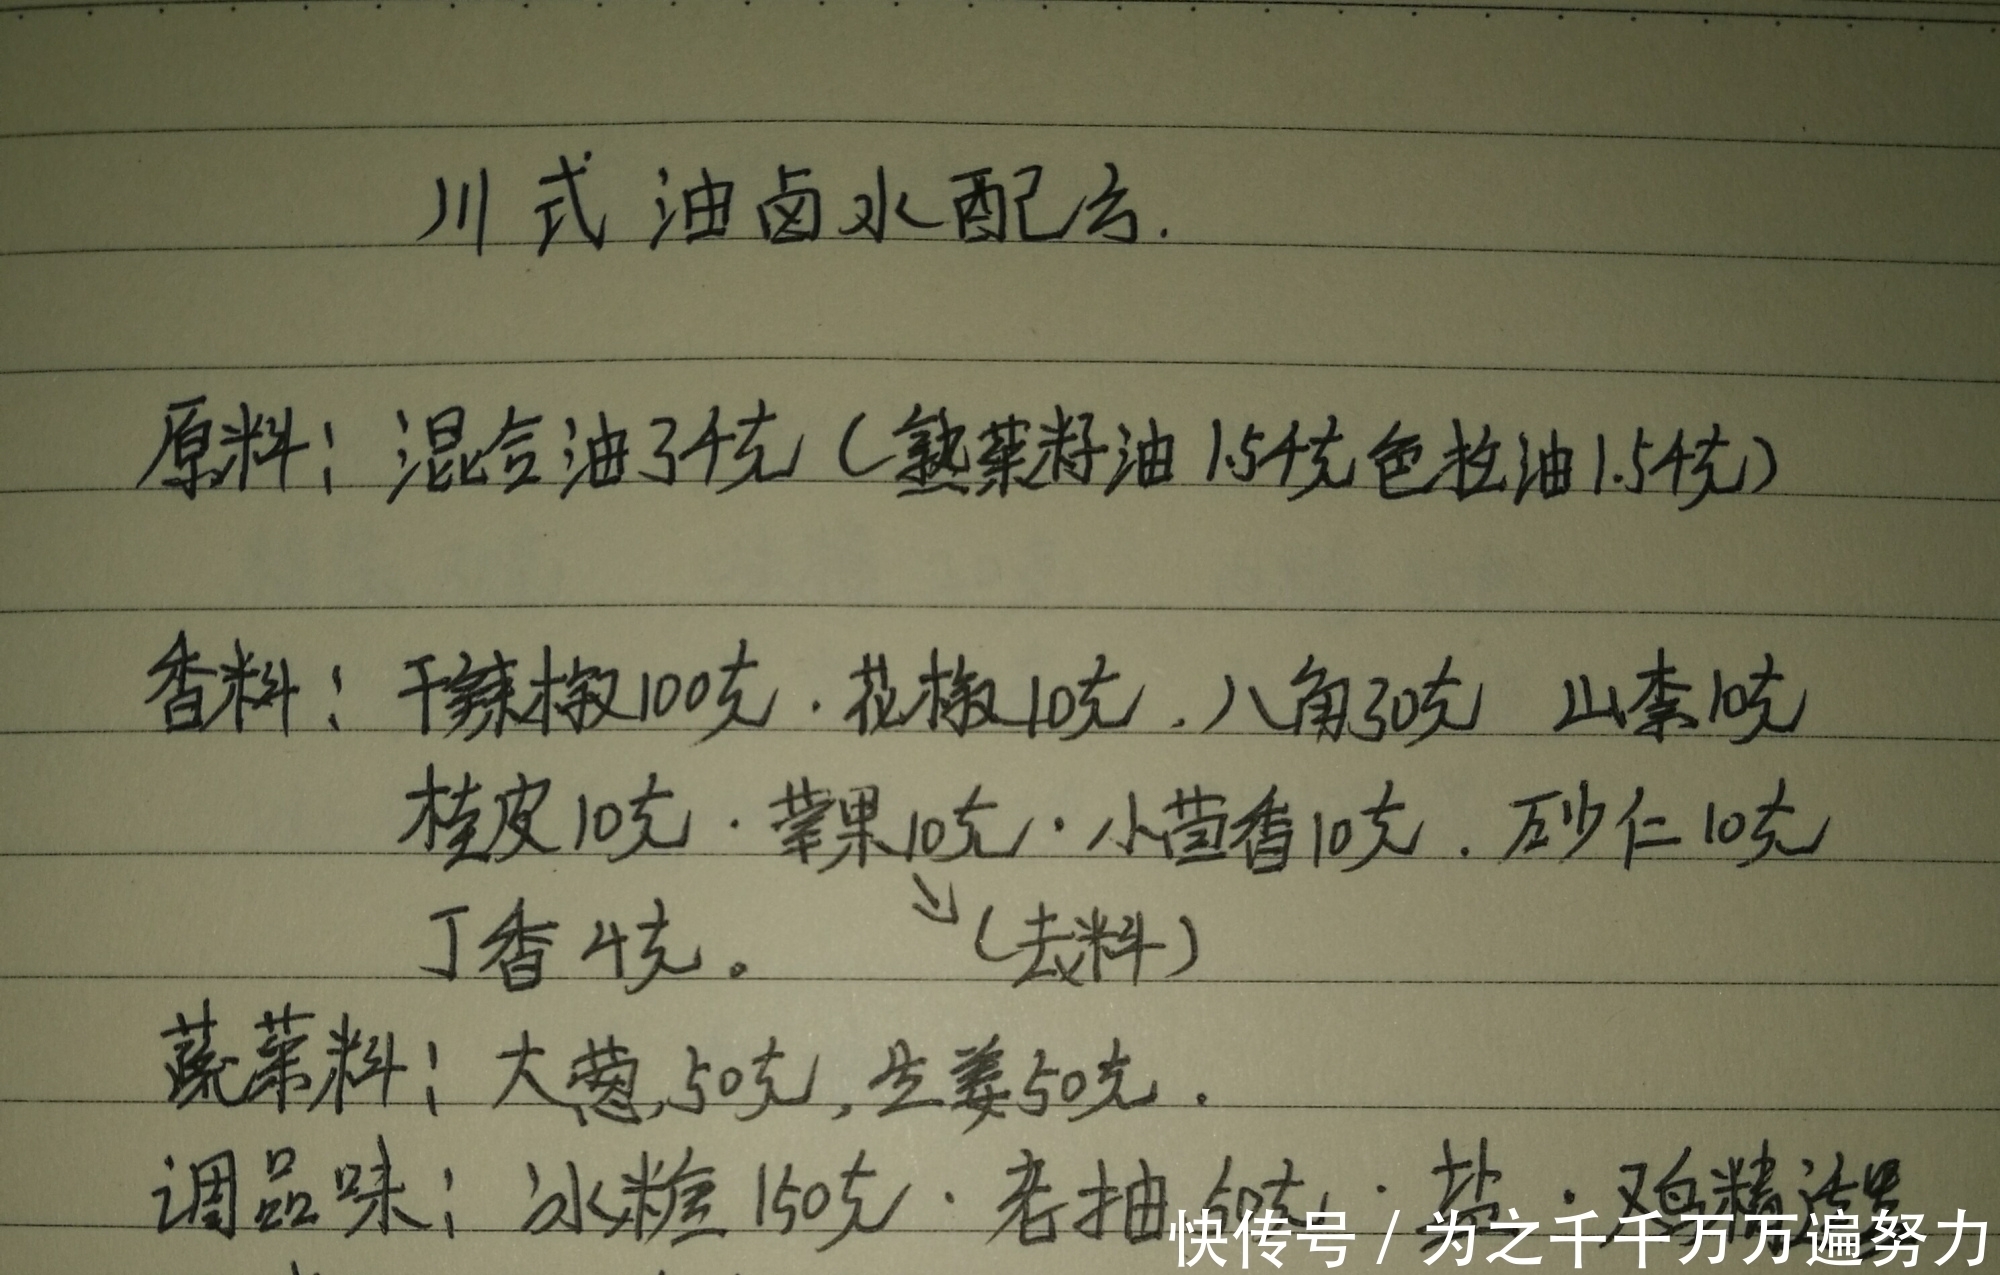 川式油卤水配方.
原料：混合油3千克（熟菜籽油1.5千克色拉油1.5千克）
香料：干辣椒100克．花椒10克．八角30克 山柰10克
桂皮10克．草果10克．小茴香10克．砂仁10克
丁香4克。 （去料）
蔬菜料：大葱50克，生姜50克．
调品味：冰糖150克．老抽50克．盐．鸡精适量
快传号 / 为之千千万万遍努力